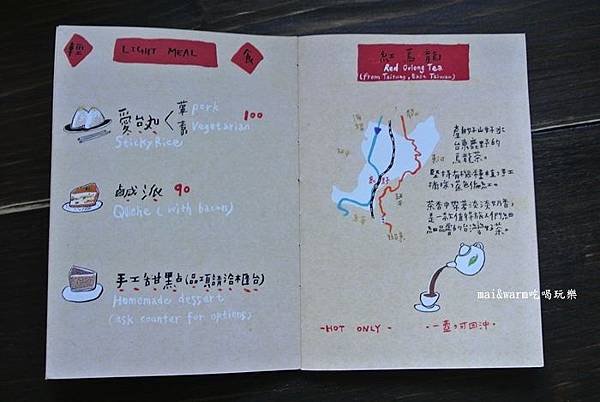 輕 LIGHT MEAL 食
愛台丸 葷 pork 100
素 Vegetarian
Sticky Rice
鹹派 90
Quiche (with bacon)
手工甜點(品項請洽櫃台)
Homemade dessert
(ask counter for options)
紅烏龍
Red Oolong Tea
(from Taitung, East Taiwan)
產於好山好水
台東鹿野的
烏龍茶。
茶香中帶著淡淡奶香,
是一款值得旅人們細
細品嘗的台灣好茶。
-HOT ONLY-
·一壺,可回沖·
mai&warm吃喝玩樂